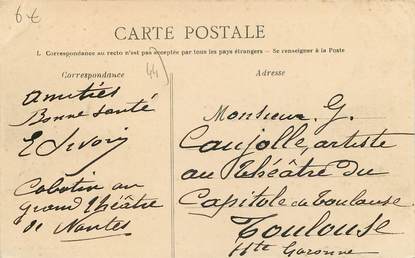 6€
CARTE POSTALE
1. Correspondance au recto n'est pas acceptée par tous les pays étrangers — Se renseigner à la Poste
Correspondance
44
Adresse
amitiés
Bonne santé
E
Cabotin au
Grand théâtre
de Nantes
Monsieur G.
Caujolle, artiste
au théâtre du
Capitole de Toulouse
Toulouse
Hte Garonne